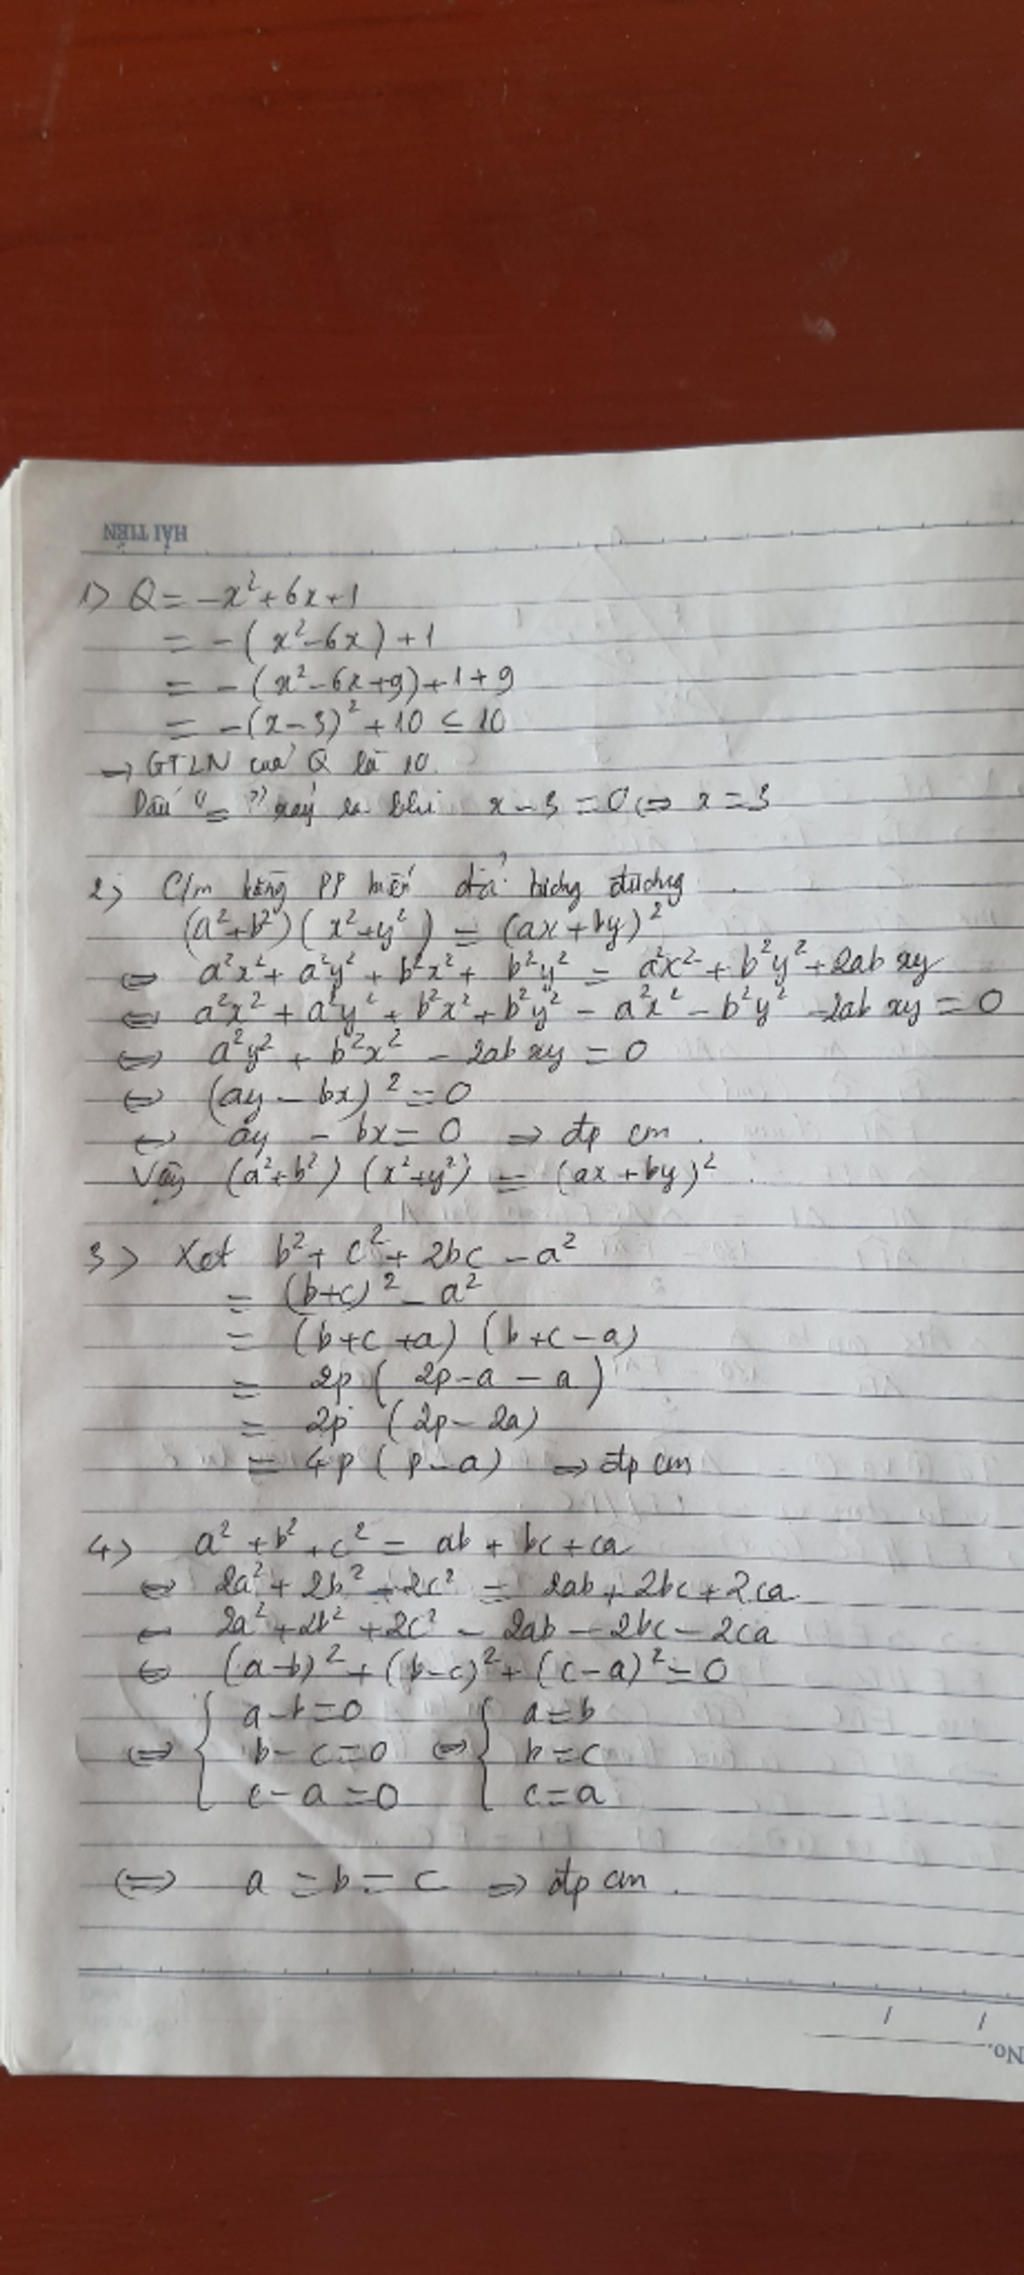 HẢI TIẾN
1) Q = -x² + 6x + 1
= -(x² - 6x) + 1
= -(x² - 6x + 9) + 1 + 9
= -(x - 3)² + 10 ≤ 10
→ GTLN của Q là 10.
Dấu "=" xảy ra khi x - 3 = 0 ⇔ x = 3
2) C/m bằng PP biến đổi tương đương
(a² + b²)(x² + y²) = (ax + by)²
⇔ a²x² + a²y² + b²x² + b²y² = a²x² + b²y² + 2abxy
⇔ a²x² + a²y² + b²x² + b²y² - a²x² - b²y² - 2abxy = 0
⇔ a²y² + b²x² - 2abxy = 0
⇔ (ay - bx)² = 0
⇔ ay - bx = 0 ⇒ đpcm.
Vậy (a² + b²)(x² + y²) = (ax + by)²
3) Xét b² + c² + 2bc - a²
= (b+c)² - a²
= (b+c+a)(b+c-a)
= 2p(2p-a-a)
= 2p(2p-2a)
= 4p(p-a) ⇒ đpcm
4) a² + b² + c² = ab + bc + ca
⇔ 2a² + 2b² + 2c² = 2ab + 2bc + 2ca
⇔ 2a² + 2b² + 2c² - 2ab - 2bc - 2ca
⇔ (a-b)² + (b-c)² + (c-a)² = 0
{ a-b=0 { a=b
⇔ b-c=0 ⇔ b=c
c-a=0 c=a
⇔ a = b = c ⇒ đpcm.
No.